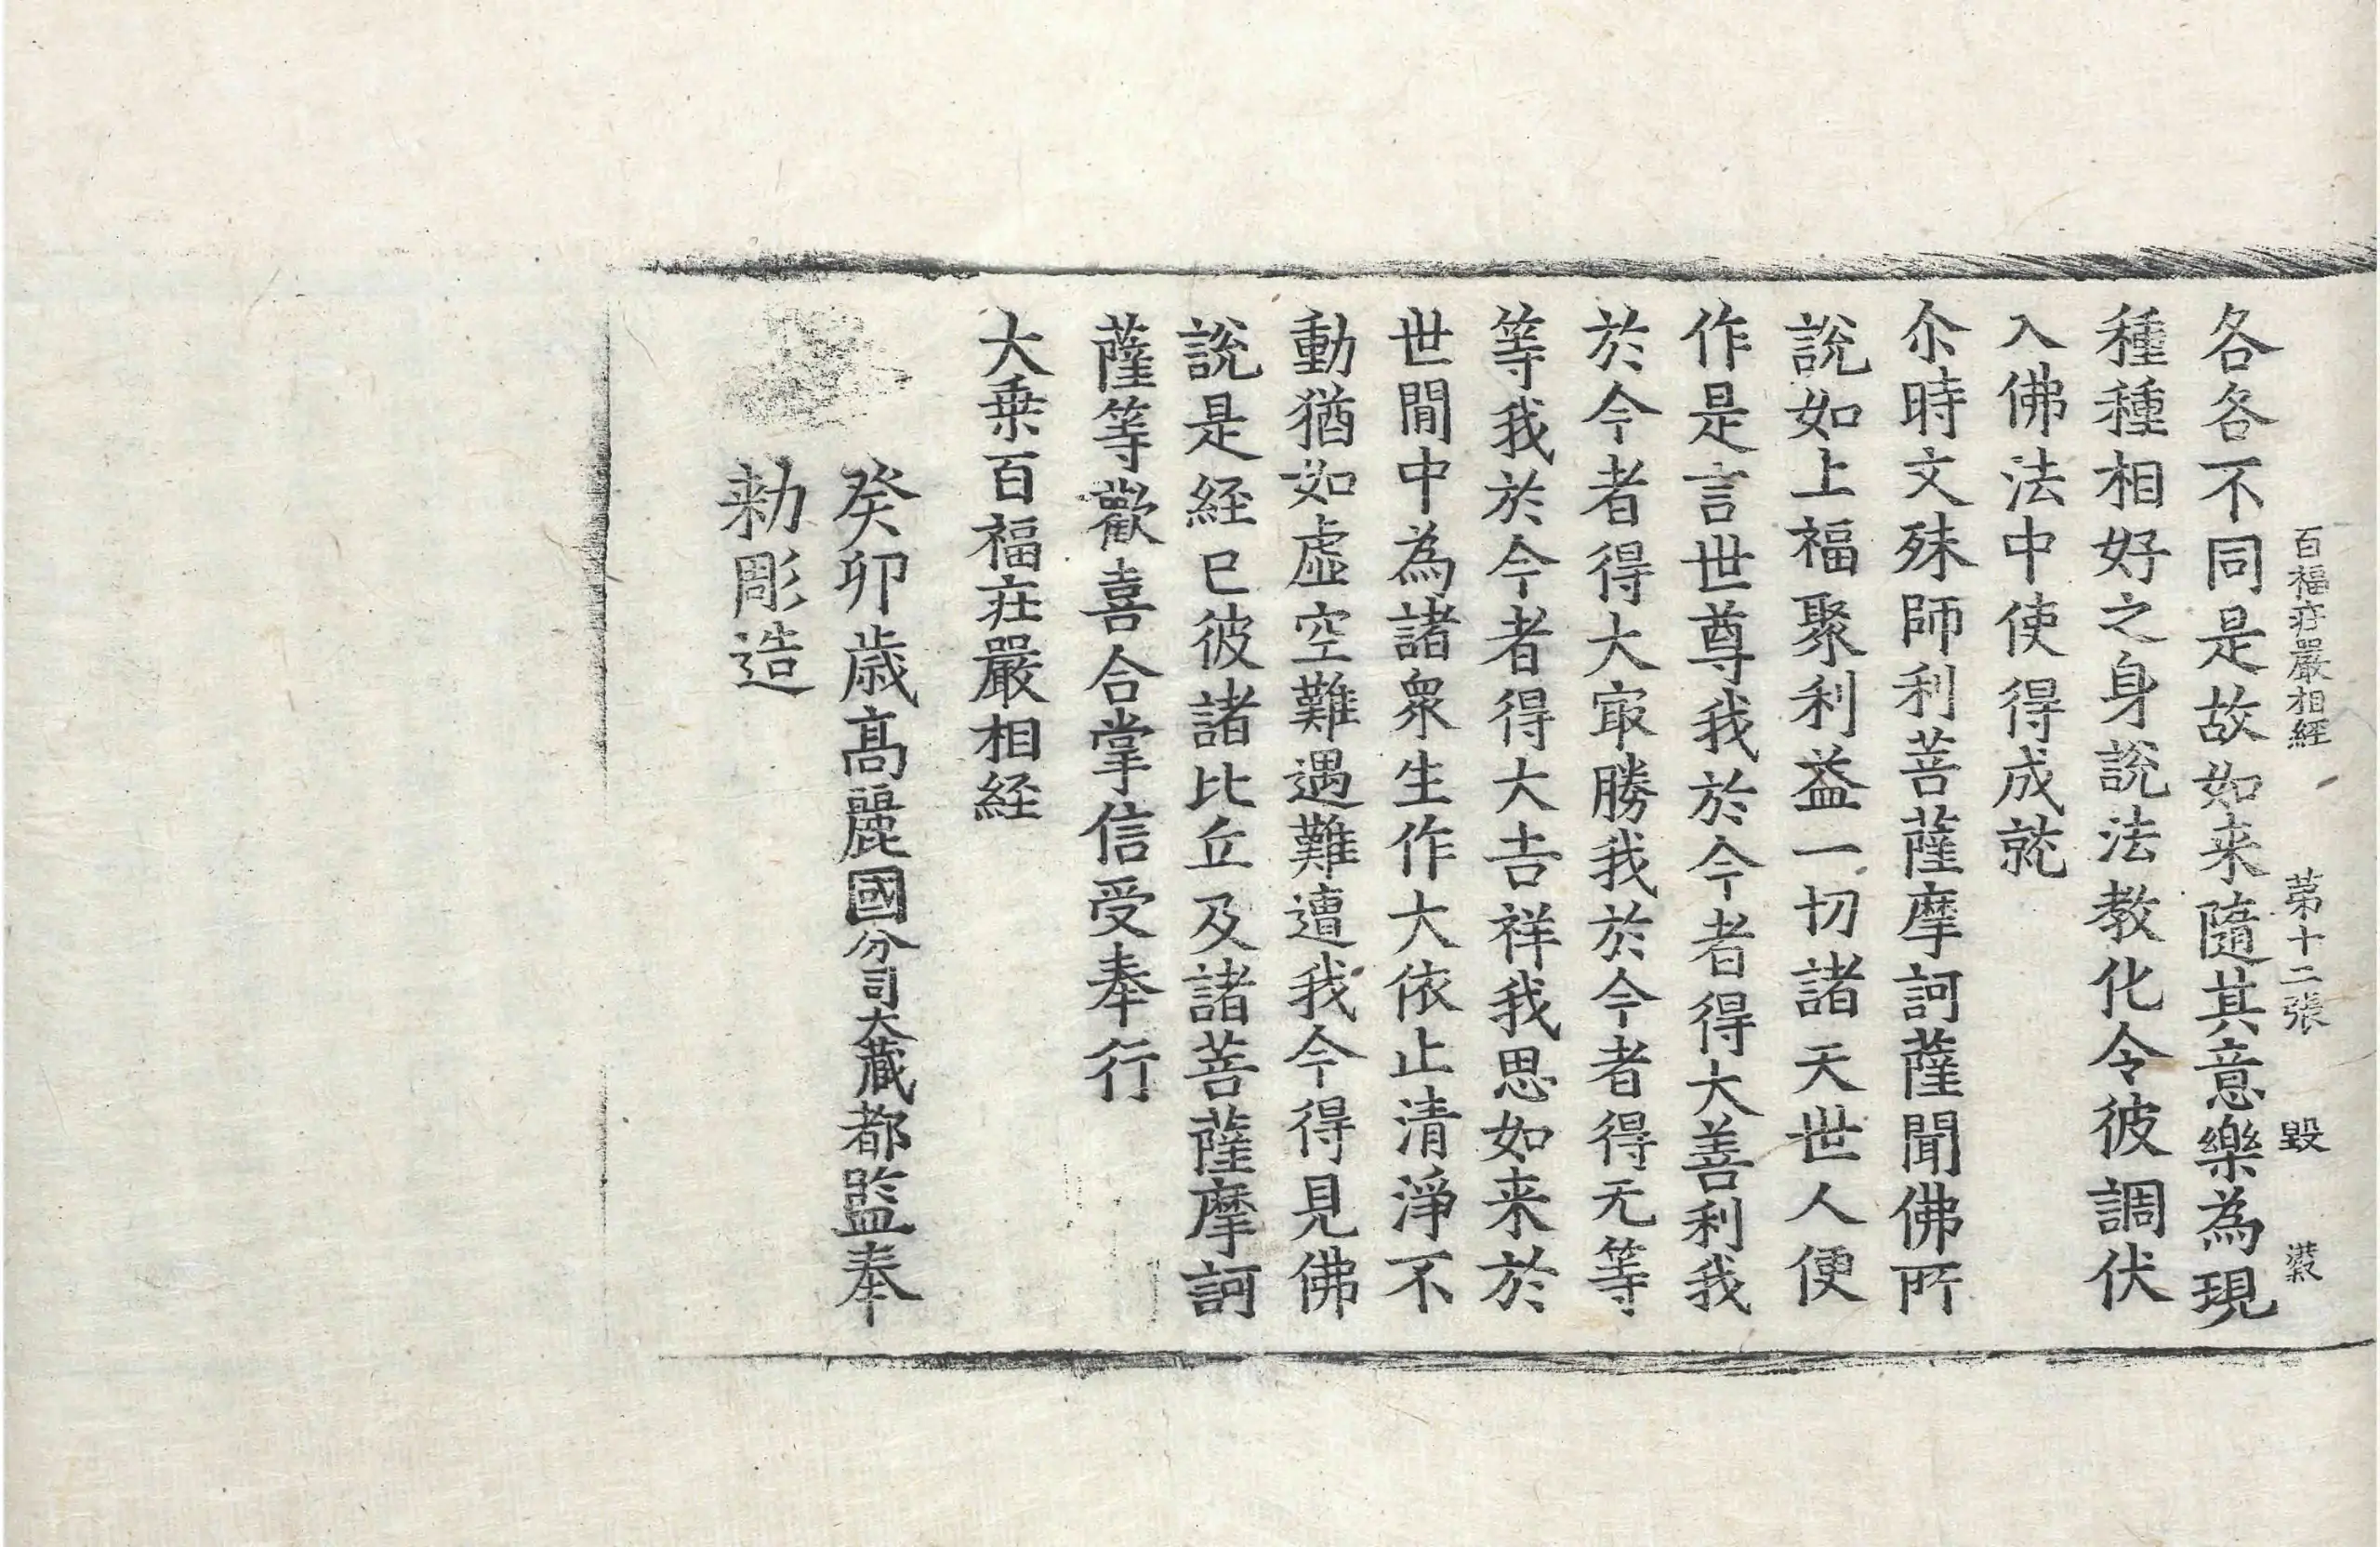 百福庄嚴相經 第十二張 毀
各各不同是故如来隨其意樂為現
種種相好之身說法教化令彼調伏
入佛法中使得成就
尒時文殊師利菩薩摩訶薩聞佛所
說如上福聚利益一切諸天世人便
作是言世尊我於今者得大善利我
於今者得大㝡勝我於今者得无等
等我於今者得大吉祥我思如来於
世閒中為諸衆生作大依止清淨不
動猶如虛空難遇難遭我今得見佛
說是經已彼諸比丘及諸菩薩摩訶
薩等歡喜合掌信受奉行
大乗百福莊嚴相經
癸卯歲髙麗國分司大藏都監奉
勑彫造